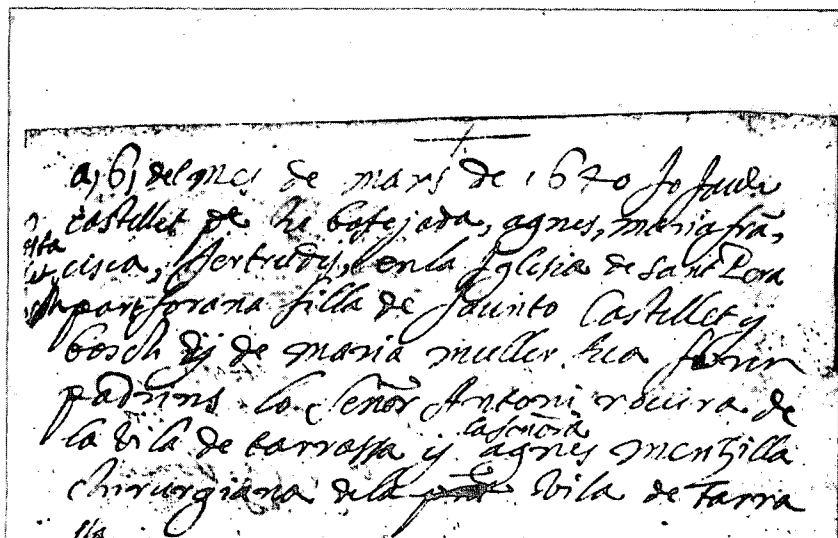 a, 6, del mes de mars de 1670 Jo Jaude
Castellet de he batejada, agnes, maria fran,
cisca, Jertrudis, en la Iglesia de Sant Pera
part forana filla de Jacinto Castellet y
bosch y de maria muller sua foren
padrins lo Señor Antoni rovira de
la vila de tarrassa y la señora agnes
chirurgiana de la pnt vila de Tarra
ssa